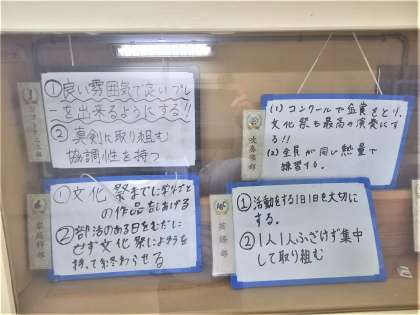 ①良い雰囲気で良いプレ
ーを出来るようにする!!
②真剣に取り組む
協調性を持つ
(1)コンクールで金賞をとり、
文化祭も最高の演奏にす
る!!
(2)全員が同じ熱量で
練習する。
吹奏楽部
①文化祭までに学年ごと
の作品を仕あげる
②部活のある日をむだに
せず文化祭によゆうを
持って終わらせる
家庭科部
①活動をする1日1日を大切に
する。
②1人1人ふざけず集中
して取り組む
英語部